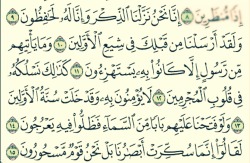 إِذًا مُّنظَرِينَ ٨ إِنَّا نَحْنُ نَزَّلْنَا الذِّكْرَ وَإِنَّا لَهُ لَحَافِظُونَ ٩
وَلَقَدْ أَرْسَلْنَا مِن قَبْلِكَ فِي شِيَعِ الْأَوَّلِينَ ١٠ وَمَا يَأْتِيهِم
مِّن رَّسُولٍ إِلَّا كَانُوا بِهِ يَسْتَهْزِءُونَ ١١ كَذَٰلِكَ نَسْلُكُهُ
فِي قُلُوبِ الْمُجْرِمِينَ ١٢ لَا يُؤْمِنُونَ بِهِ وَقَدْ خَلَتْ سُنَّةُ الْأَوَّلِينَ
١٣ وَلَوْ فَتَحْنَا عَلَيْهِم بَابًا مِّنَ السَّمَاءِ فَظَلُّوا فِيهِ يَعْرُجُونَ ١٤
لَقَالُوا إِنَّمَا سُكِّرَتْ أَبْصَارُنَا بَلْ نَحْنُ قَوْمٌ مَّسْحُورُونَ ١٥